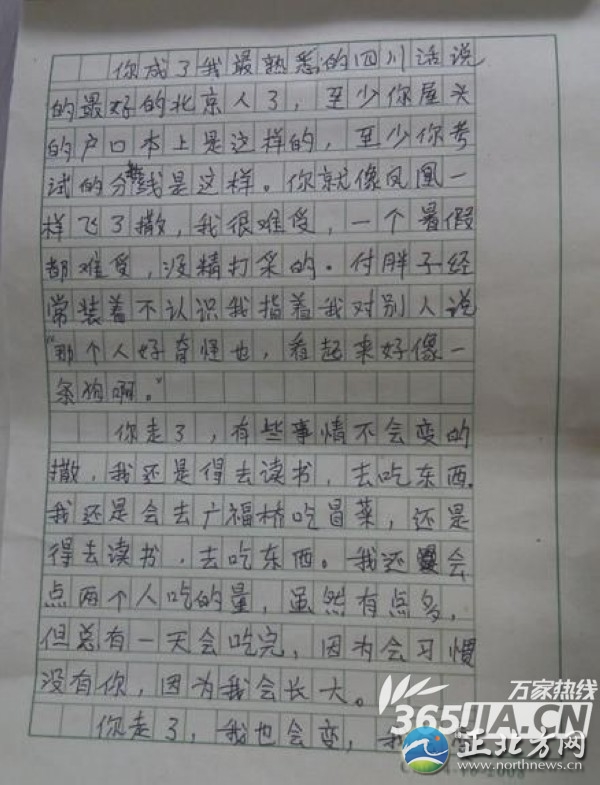 你成了我最熟悉的四川话说
的最好的北京人了，至少你屋头
的户口本上是这样的，至少你考
试的分数线是这样。你就像凤凰一
样飞了撒，我很难受，一个暑假
都难受，没精打采的．付胖子经
常装着不认识我指着我对别人说
“那个人好奇怪也，看起来好像一
条狗啊。”
你走了，有些事情不会变的
撒，我还是得去读书，去吃东西．
我还是会去广福桥吃冒菜，还是
得去读书．去吃东西。我还会
点两个人吃的量，虽然有点多，
但总有一天会吃完，因为会习惯
没有你，因为我会长大。
你走了，我也会变，我
万家热线
365JIA.CN
正北方网
www.northnews.cn